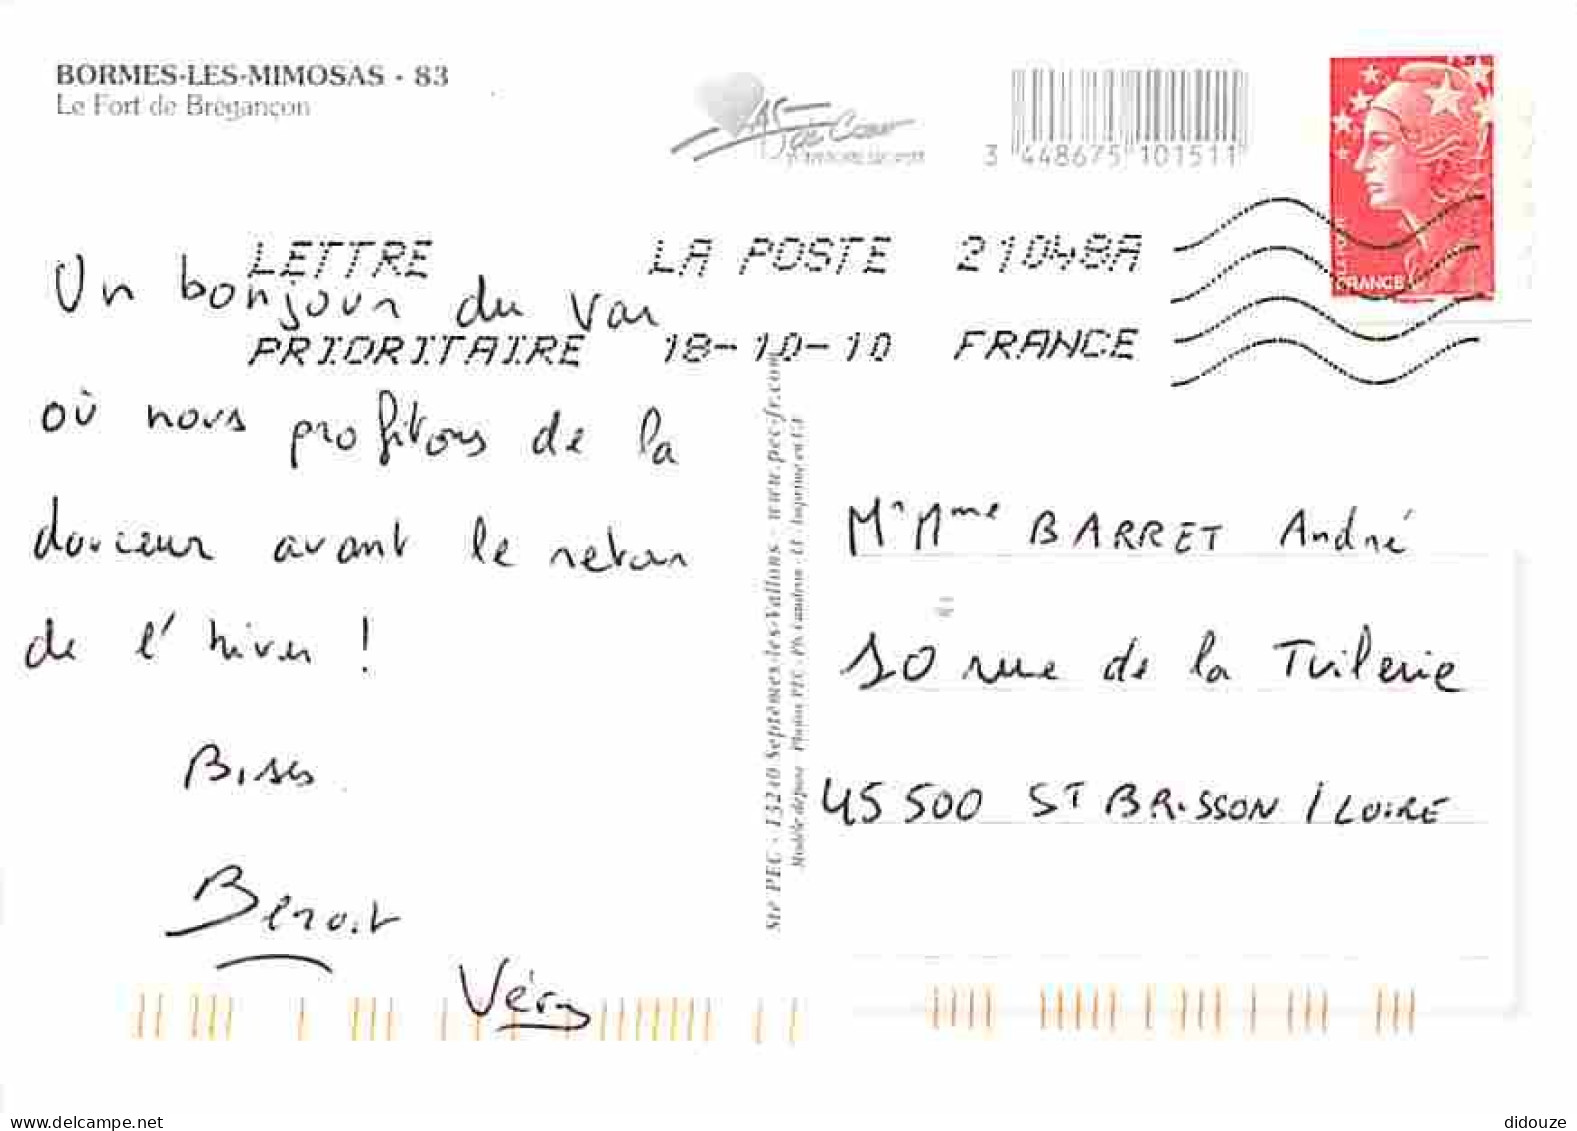 BORMES-LES-MIMOSAS - 83
Le Fort de Brégançon
3 448675 101511
FRANCE
LETTRE LA POSTE 21048A
PRIORITAIRE 18-10-10 FRANCE
Un bonjour du Var
où nous profitons de la
douceur avant le retour
de l'hiver !
Bises
Benoit
Véro
Sté PEC - 13240 Septèmes-les-Vallons - www.pec-fr.com
Modèle déposé - Photos PEC - Imprimé en UE
Mr Mme BARRET André
10 rue de la Tuilerie
45500 ST BRISSON / LOIRE
delcampe.net
didouze